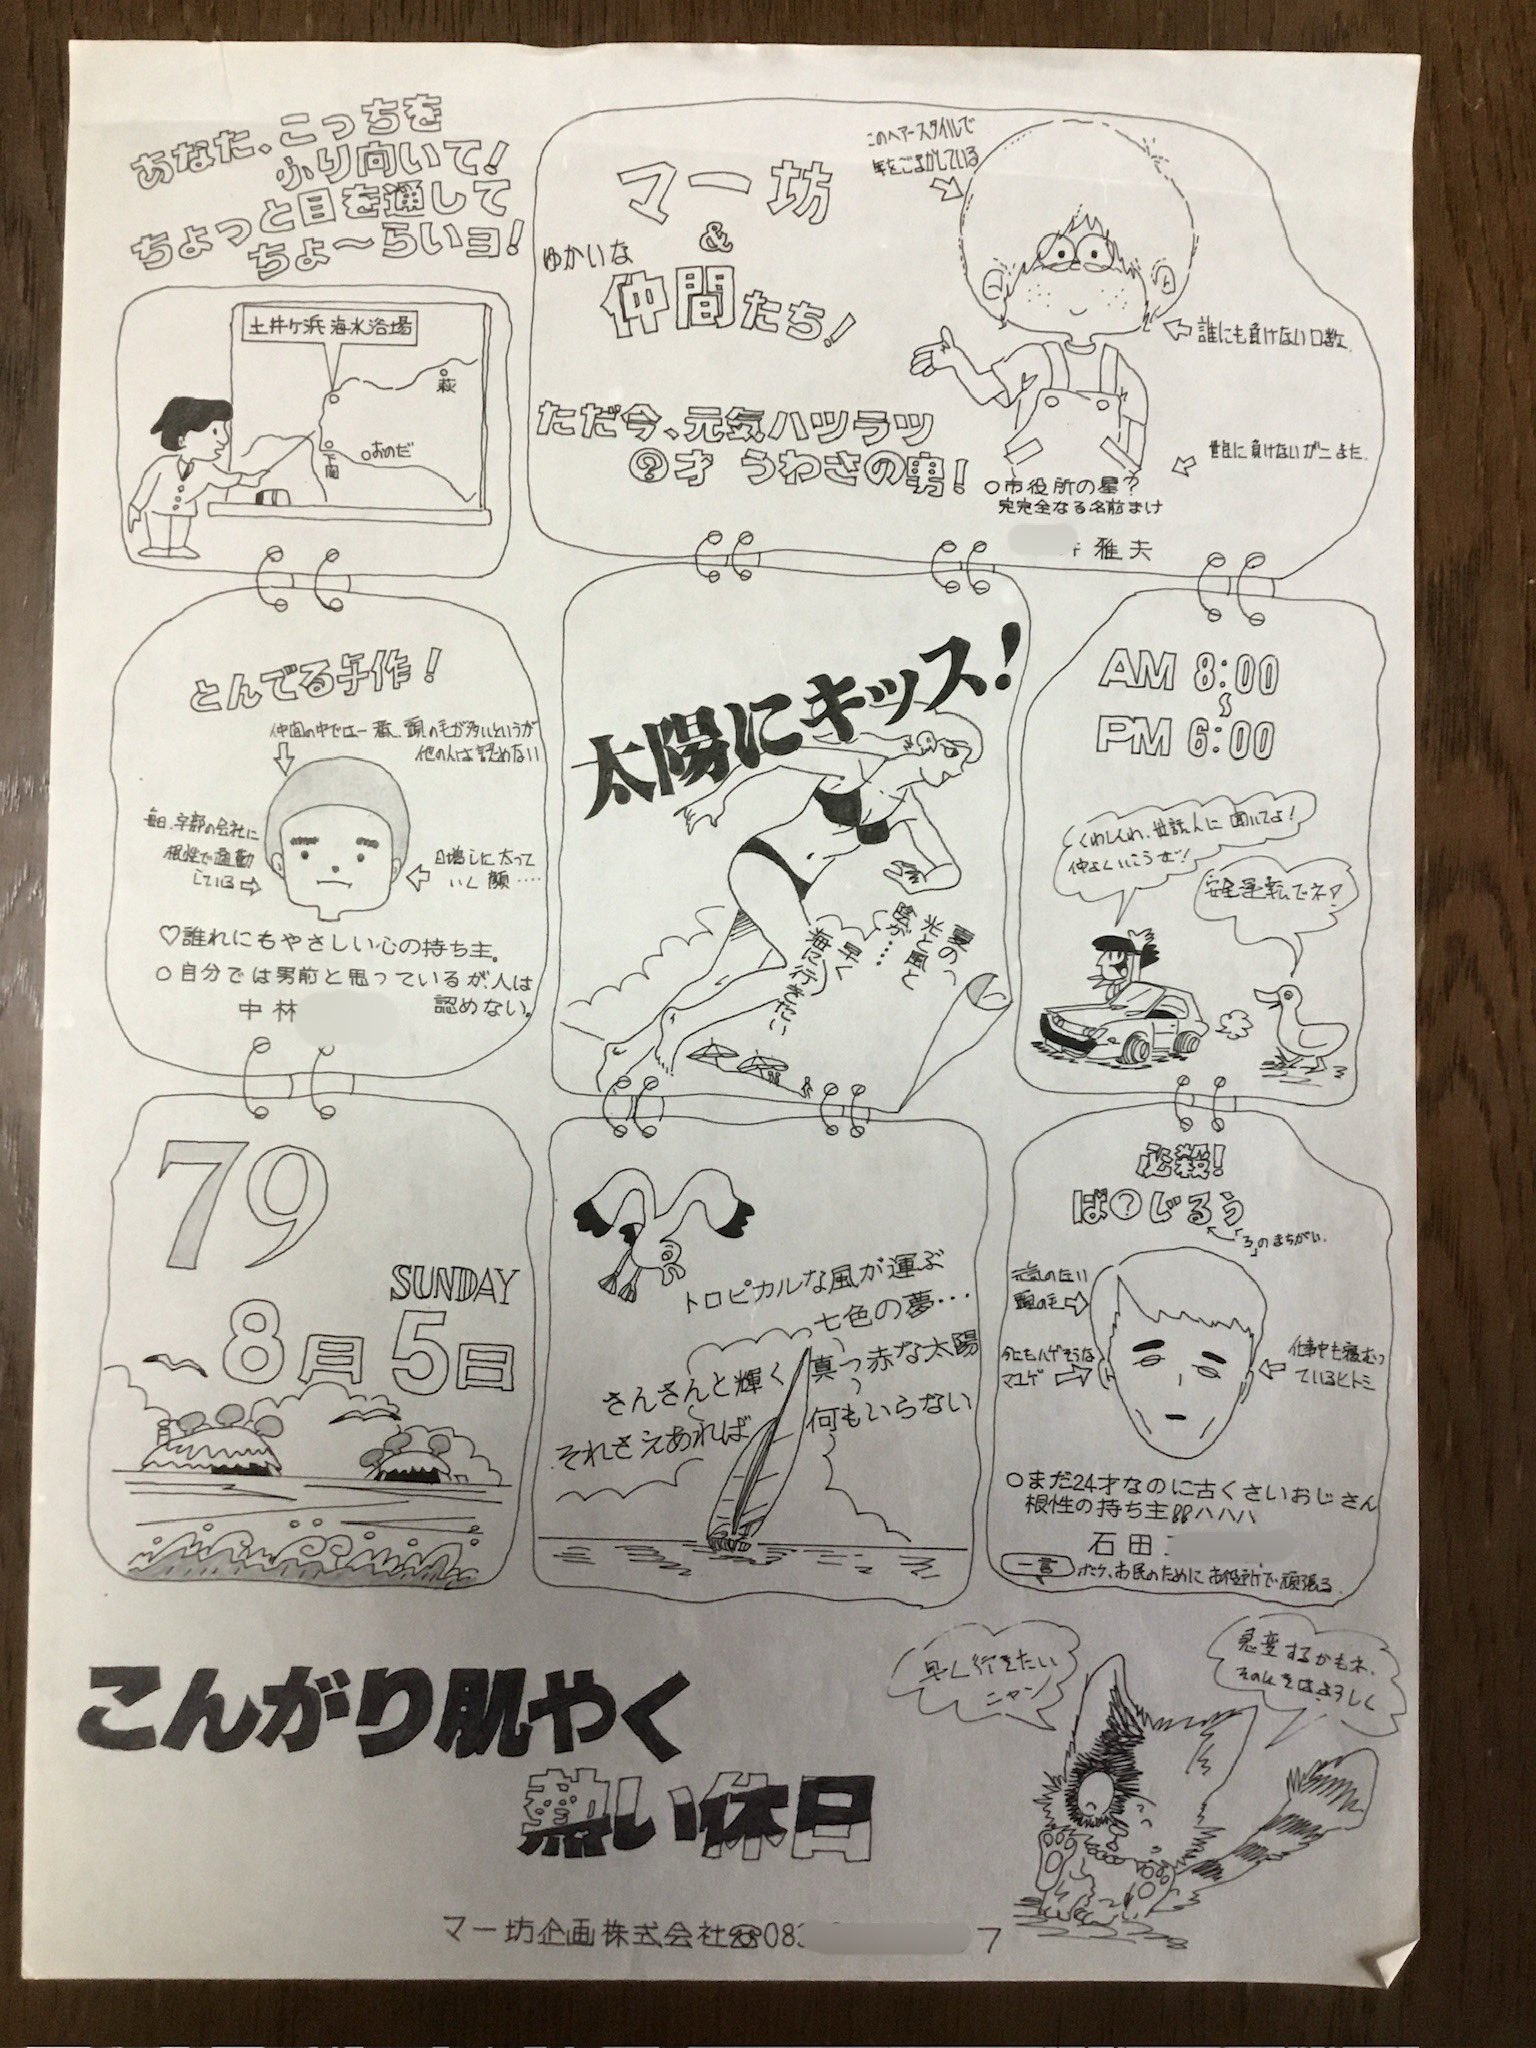 あなた、こっちを
ふり向いて！
ちょっと目を通して
ちょ〜らいヨ！
土井ケ浜海水浴場
萩
下関
おのだ
マー坊
&
ゆかいな
仲間たち！
このヘアースタイルで
年をごまかしている
誰にも負けない口数
ただ今、元気ハツラツ
?才 うわさの男！
に負けないガニまた
○市役所の星？
完完全なる名前まけ
雅夫
とんでる手作！
仲間の中では一番、頭の毛が多いというが
他の人は認めない
毎日、宇部の会社に
根性で通勤
している
日増しに太って
いく顔……
♡誰れにもやさしい心の持ち主。
○自分では男前と思っているが、人は
認めない。
中林
太陽にキッス！
夏の
光と風と
陰が…
早く
海に行きたい
AM 8:00
〜
PM 6:00
くわしくわ、世話人に聞いてよ！
仲よくいこうぜ！
安全運転でネ？
79
SUNDAY
8月5日
トロピカルな風が運ぶ
七色の夢…
さんさんと輝く真っ赤な太陽
それさえあれば何もいらない
必殺！
ば?じるう
「ろ」のまちがい。
元気のない
頭の毛
今にもハゲそうな
マユゲ
仕事中も寝むっ
ているヒトミ
○まだ24才なのに古くさいおじさん
根性の持ち主!!ハハハ
石田
一言 ボク、お民のために お役所で頑張る
こんがり肌やく
熱い休日
早く行きたい
ニャン
急変するかもネ、
そのときはよろしく
マー坊企画株式会社☎08
7